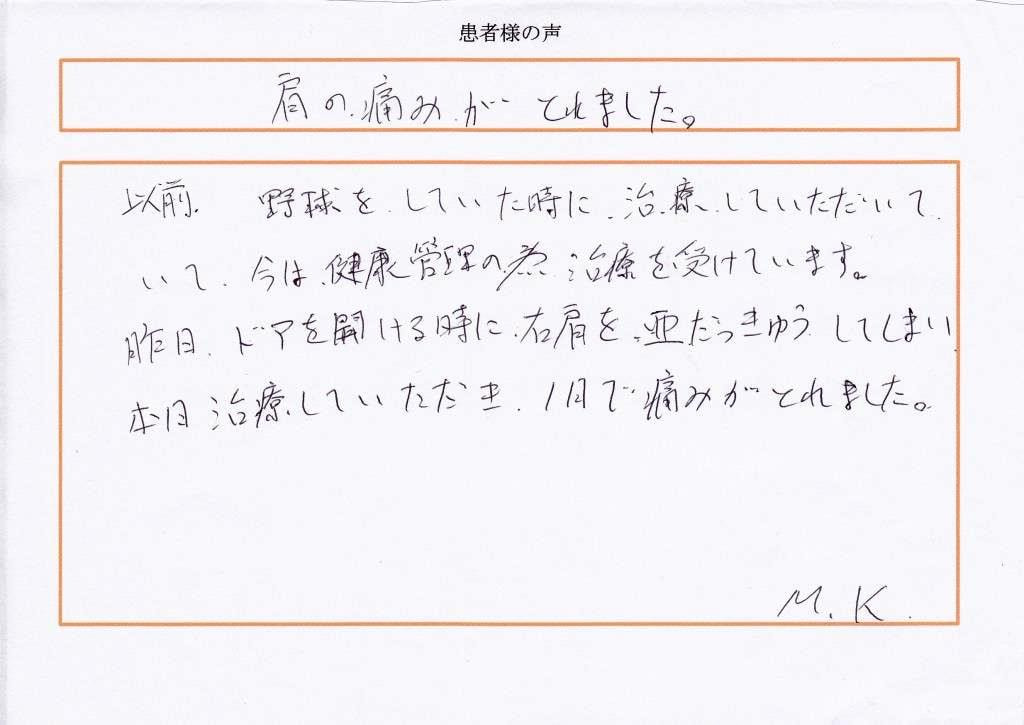 患者様の声
肩の痛みがとれました。
以前、野球をしていた時に、治療していただいて
いて、今は、健康管理の為、治療を受けています。
昨日、ドアを開ける時に、右肩を、亜だっきゅうしてしまい、
本日治療していただき、1日で痛みがとれました。
M.K.